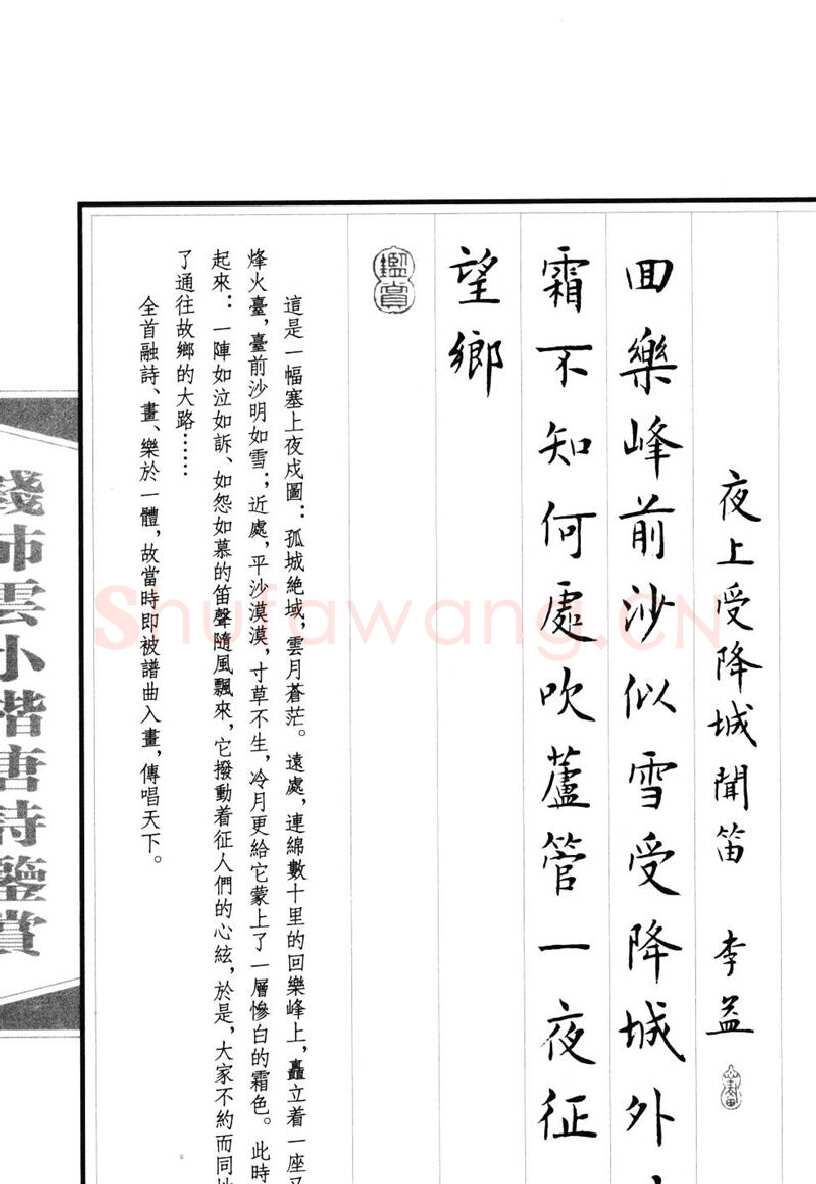 夜上受降城聞笛 李益
回樂峰前沙似雪受降城外
霜不知何處吹蘆管一夜征
望鄉
鑑賞
這是一幅塞上夜戍圖：孤城絶域，雲月蒼茫。遠處，連綿數十里的回樂峰上，矗立着一座又
烽火臺，臺前沙明如雪；近處，平沙漠漠，寸草不生，冷月更給它蒙上了一層慘白的霜色。此時
起來：一陣如泣如訴、如怨如慕的笛聲隨風飄來，它撥動着征人們的心絃，於是，大家不約而同地
了通往故鄉的大路……
全首融詩、畫、樂於一體，故當時即被譜曲入畫，傳唱天下。
錢沛雲小楷唐詩鑒賞
Shufawang.CN